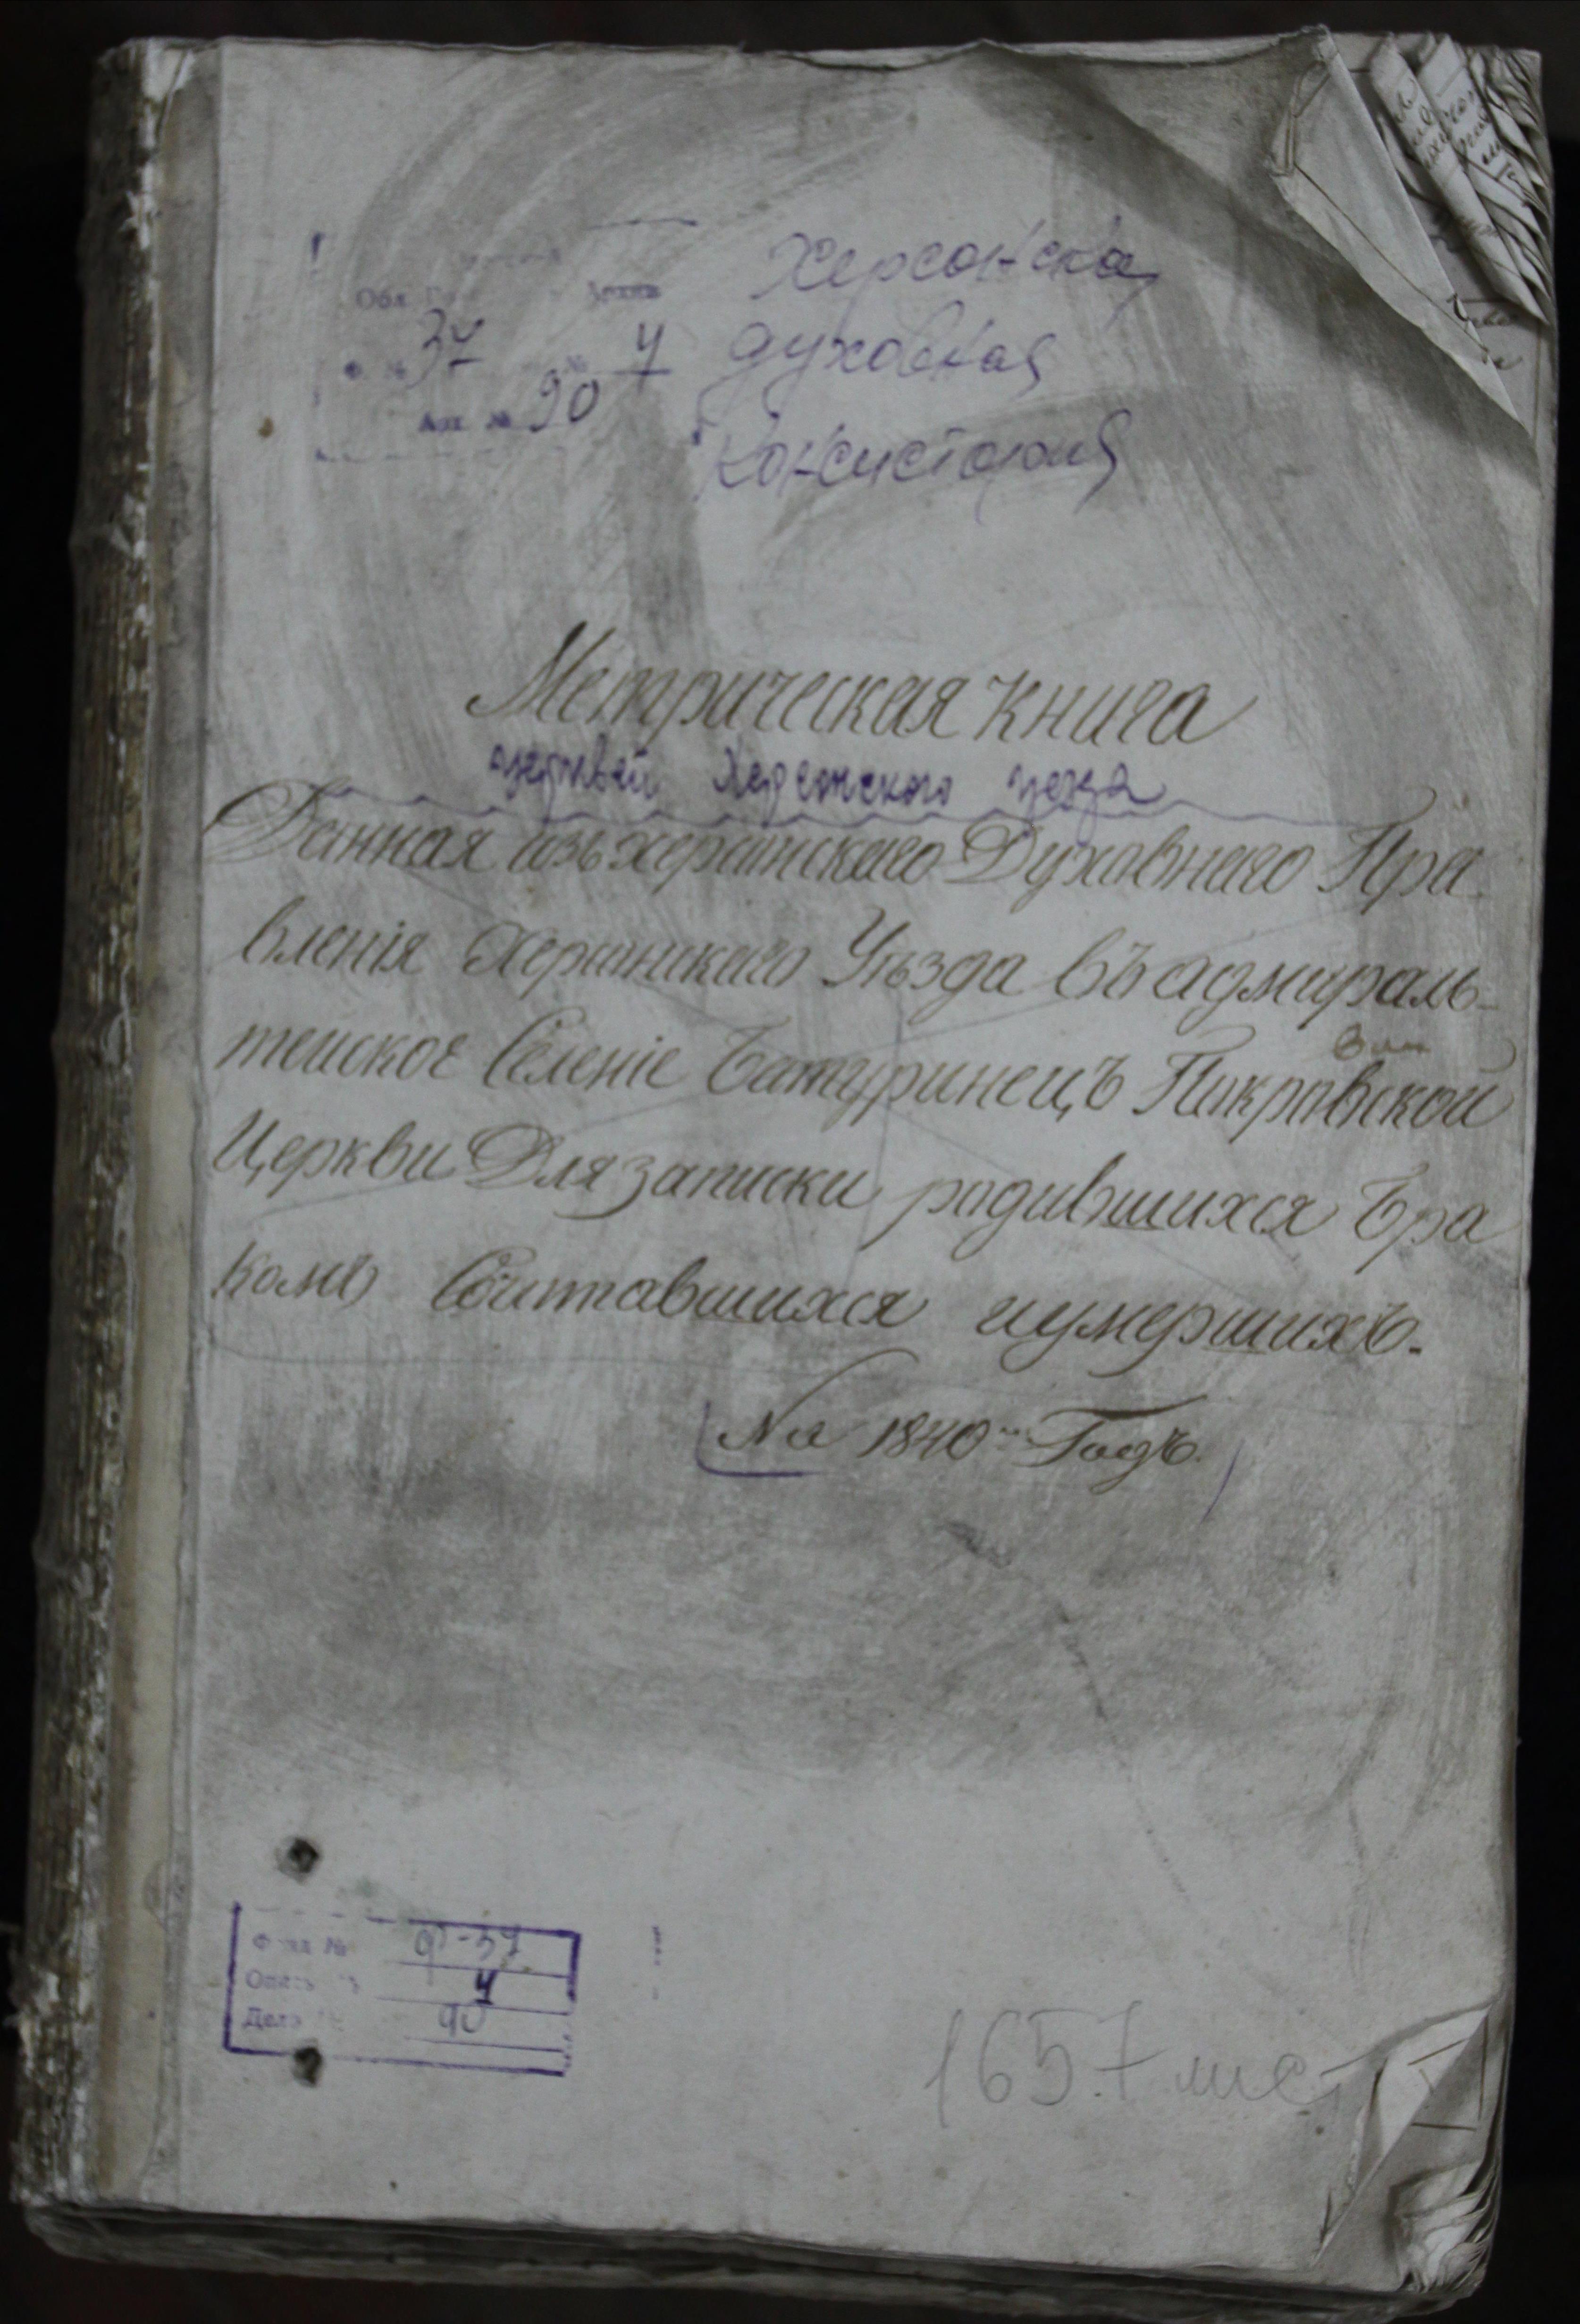 Херсонская
Обл. Архив
духовная
Ф. № 37 № 4
90
консистория
Метрическая книга
церквей Херсонского уезда
Данная изъ херсонскаго Духовнаго Пра
вленія Херсонскаго Уѣзда въ адмираль-
тейское Селеніе Батуринецъ Покровской
Церкви Для записки родившихся Бра
комъ Сочитавшихся и умершихъ.
На 1840й Годъ.
Фонд № Ф-37
Опись 4
Дело 90
1657 лист